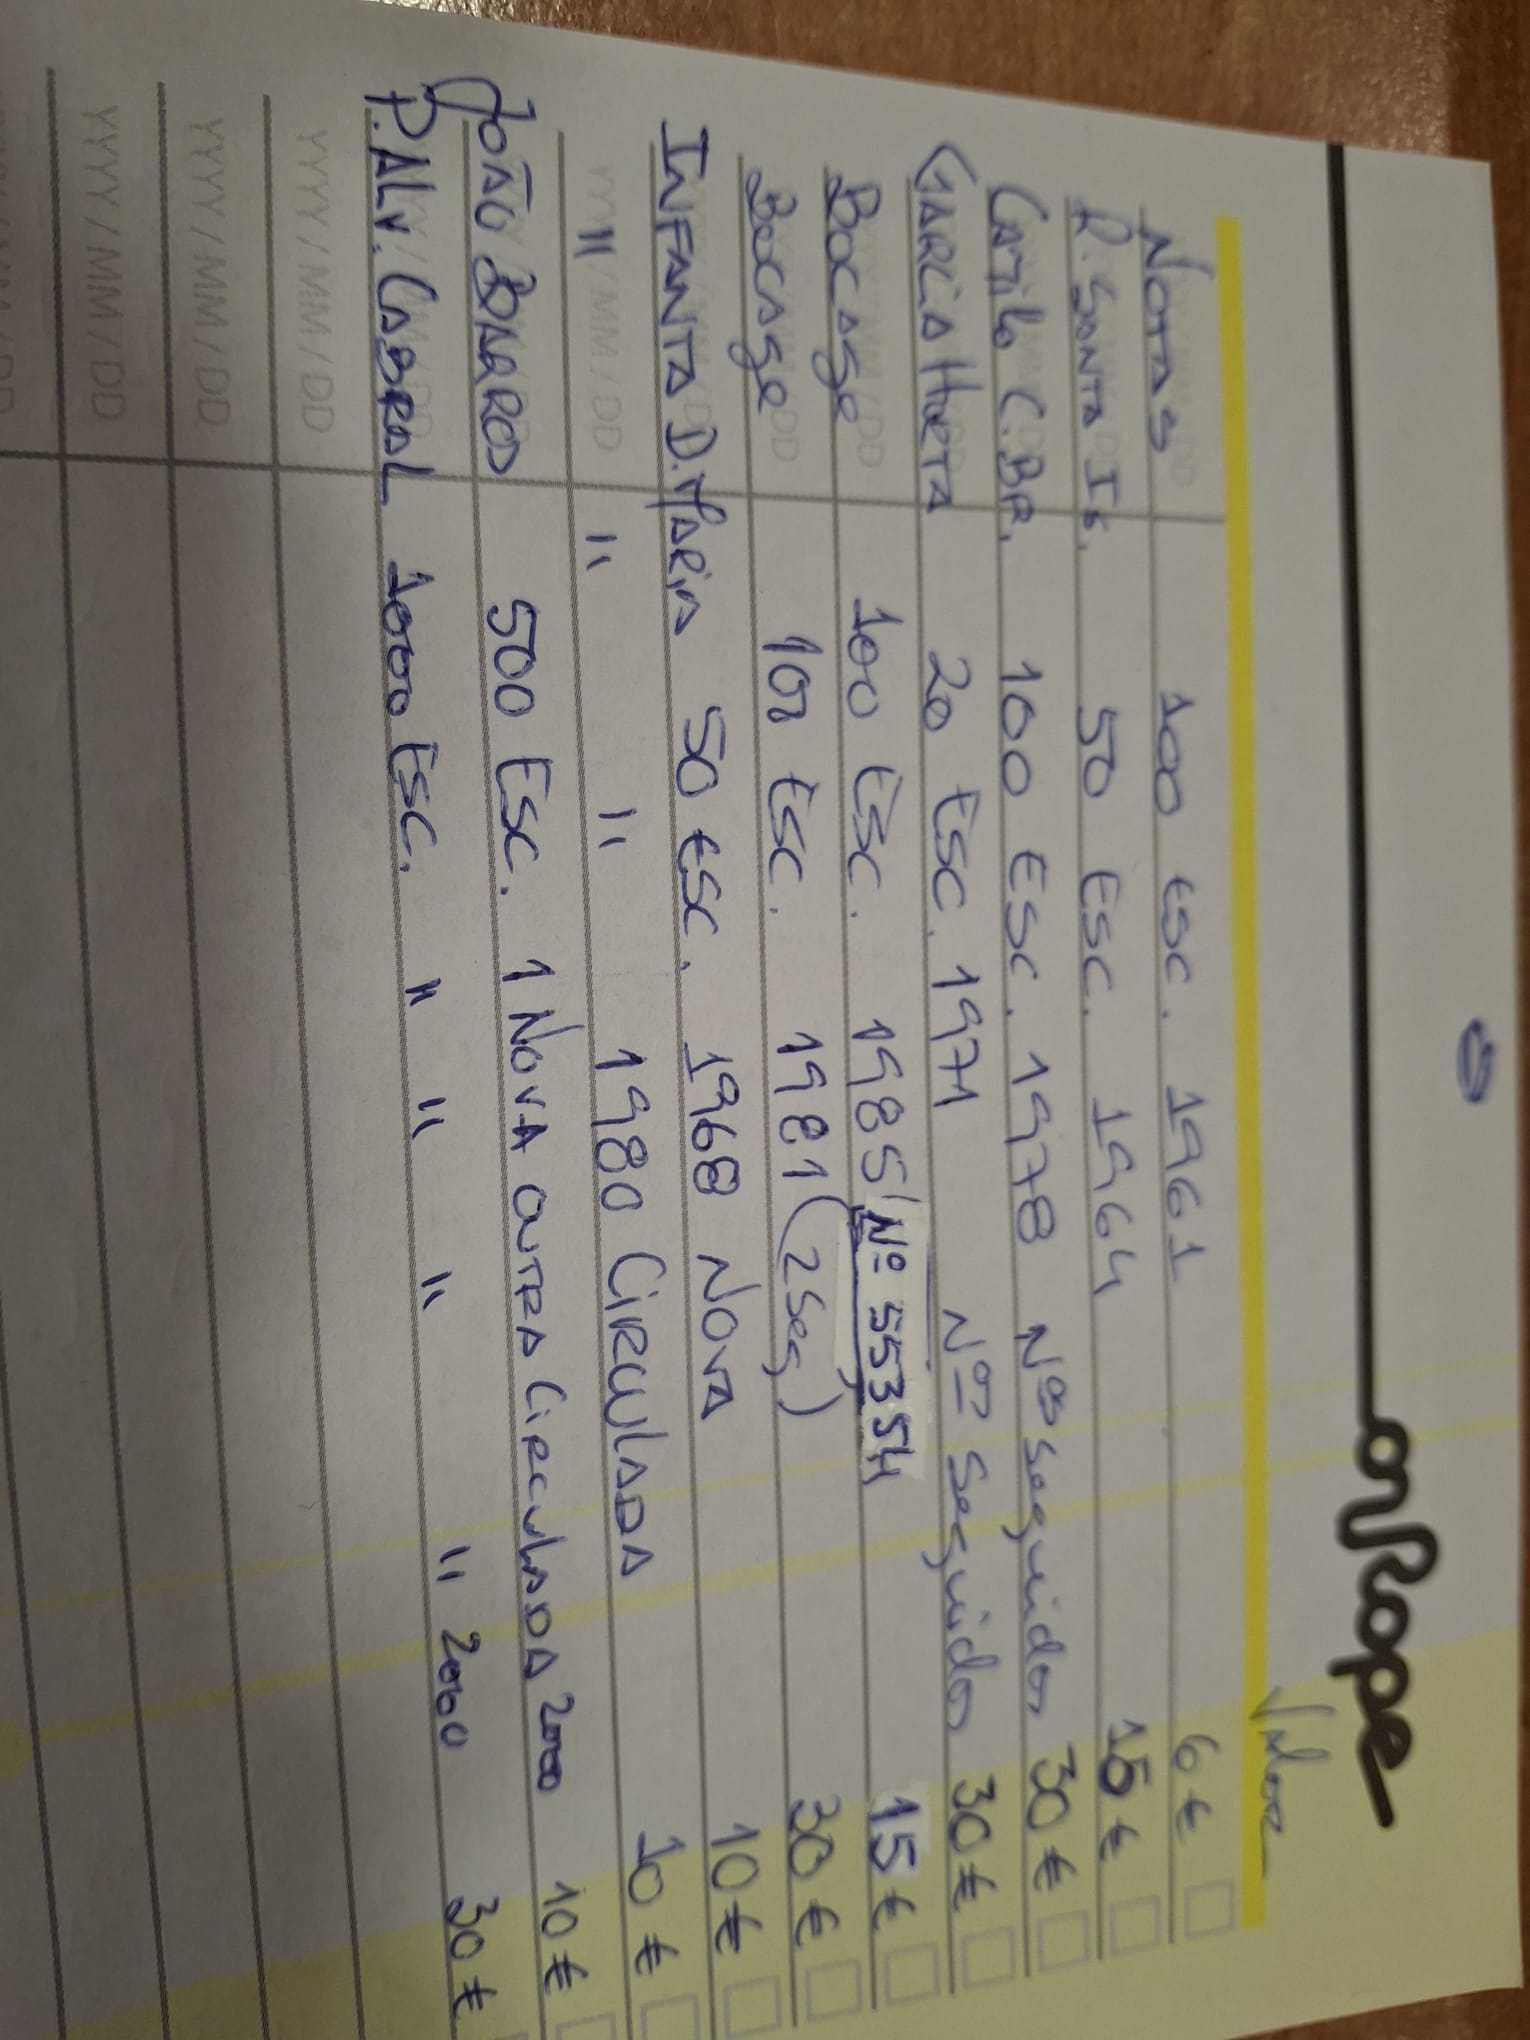 onRope
Valor
Notas 100 Esc. 1961 6€
R. Santa Is. 50 Esc. 1964 15€
Camilo C. BR. 100 Esc. 1978 Nºs seguidos 30€
GARCIA HORTA 20 Esc. 1971 Nºs Seguidos 30€
Bocage 100 Esc. 1985/Nº 55354 15€
Bocage 100 Esc. 1981 (2 Seg.) 30€
INFANTA D. MARIA 50 Esc. 1968 NOVA 10€
" " " 1980 CIRCULADA 10€
JOÃO BARROS 500 Esc. 1 NOVA OUTRA CIRCULADA 2000 10€
P. ALV. CABRAL 1000 Esc. " " " " 2000 30€
YYYY/MM/DD
YYYY/MM/DD
YYYY/MM/DD